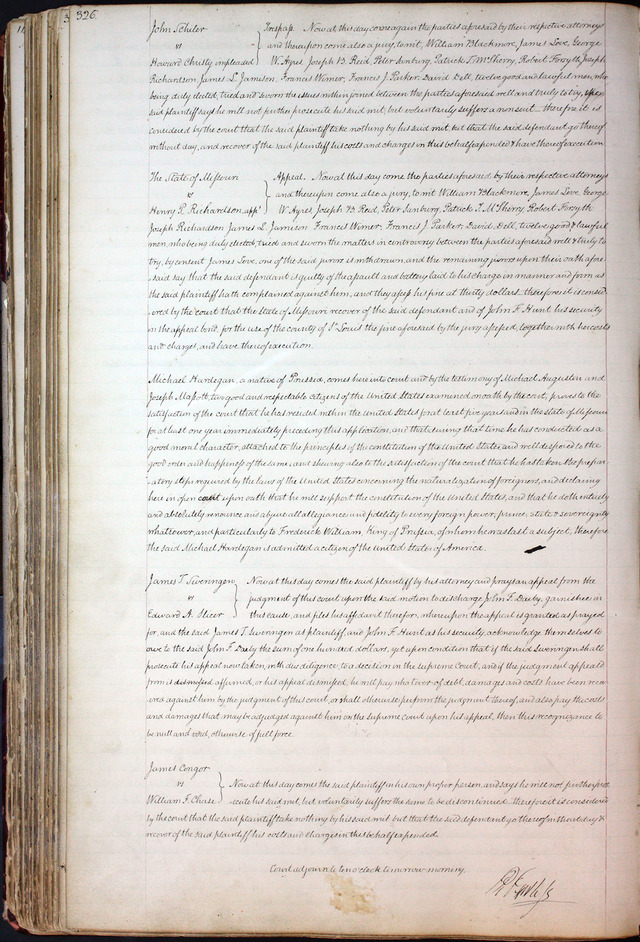 326.
John Schuler } Trespass. Now at this day come again the parties aforesaid by their respective attorneys
vs and thereupon come also a jury, to wit, William Blackmore, James Love, George
Howard Christy impleaded W. Ayres, Joseph B. Reid, Peter Sunburg, Patrick T. McSherry, Robert Forsyth, Joseph
Richardson, James L. Jamison, Francis Womer, Francis J. Parker, David Dell, twelve good and lawful men, who
being duly elected, tried and sworn the issues within joined between the parties aforesaid well and truly to try,
said plaintiff says he will not further prosecute his said suit, but voluntarily suffers a nonsuit. therefore it is
considered by the court that the said plaintiff take nothing by his said suit, but that the said defendant go thereof
without day, and recover of the said plaintiff his costs and charges in this behalf expended & have thereof execution
The State of Missouri } Appeal. Now at this day come the parties aforesaid by their respective attorneys
vs and thereupon come also a jury, to wit William Blackmore, James Love, George
Henry R. Richardson, appt W. Ayres, Joseph B. Reid, Peter Sunburg, Patrick T. McSherry, Robert Forsyth
Joseph Richardson James L. Jamison Francis Womer, Francis J. Parker, David Dell, twelve good & lawful
men, who being duly elected, tried and sworn the matters in controversy between the parties aforesaid well & truly to
try, by consent James Love, one of the said jurors is withdrawn, and the remaining jurors upon their oath afore-
said say that the said defendant is guilty of the assault and battery laid to his charge in manner and form as
the said plaintiff hath complained against him, and they assess his fine at thirty dollars. therefore it is consid-
ered by the court that the State of Missouri recover of the said defendant and of John F. Hunt his security
in the appeal bond, for the use of the county of St Louis the fine aforesaid by the jury assessed, together with her costs
and charges, and have thereof execution.
Michael Hardegan, a native of Prussia, comes here into court and by the testimony of Michael Augustin and
Joseph two good and respectable citizens of the United States examined on oath by the court, proves to the
satisfaction of the court that he has resided within the United States for at least five years and in the state of Missouri
for at least one year immediately preceding this application, and that during that time he has conducted as a
good moral character, attached to the principles of the constitution of the United States and well disposed to the
good order and happiness of the same, and shewing also to the satisfaction of the court that he has taken the prepar-
atory steps required by the laws of the United States concerning the naturalization of foreigners, and declaring
here in open court upon oath that he will support the constitution of the United States, and that he doth entirely
and absolutely renounce and abjure all allegiance and fidelity to every foreign power, prince, state & sovereignty
whatsoever, and particularly to Frederick William, King of Prussia, of whom he was last a subject, therefore
the said Michael Hardegan is admitted a citizen of the United States of America.
James T. Sweringen } Now at this day comes the said plaintiff by his attorney and prays an appeal from the
vs judgment of this court upon the said motion to discharge John F. Darby, garnishee in
Edward A. Slicer this cause, and files his affidavit therefor, whereupon the appeal is granted as prayed
for, and the said James T. Sweringen as plaintiff, and John F. Hunt as his security, acknowledge themselves to
owe to the said John F. Darby the sum of one hundred dollars, yet upon condition that if the said Sweringen shall
prosecute his appeal now taken, with due diligence, to a decision in the supreme Court, and if the judgment appealed
from is affirmed, or his appeal dismissed, he will pay whatever of debt, damages and costs have been recov-
ered against him by the judgment of this court, or shall otherwise perform the judgment thereof, and also pay the costs
and damages that may be adjudged against him in the supreme Court upon his appeal, then this recognizance to
be null and void, otherwise of full force.
James Congor
vs } Now at this day comes the said plaintiff in his own proper person, and says he will not further pros-
William F. Chase ecute his said suit, but voluntarily suffers the same to be discontinued. therefore it is considered
by the court that the said plaintiff take nothing by his said suit but that the said defendant go thereof without day &
recover of the said plaintiff his costs and charges in this behalf expended.
Court adjourn to ten o'clock tomorrow morning.